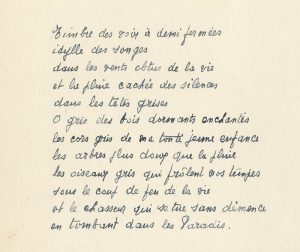 Timbre des voix à demi fermées
idylle des songes
dans les vents obtus de la vie
et la pluie cachée des silences
dans les têtes grises
O gris des bois dormants enchantés
les cors gris de ma toute jeune enfance
les arbres plus doux que la pluie
les oiseaux gris qui frôlent nos tempes
sous le coup de feu de la vie
et le chasseur qui se tue sans démence
en tombant dans les Paradis.